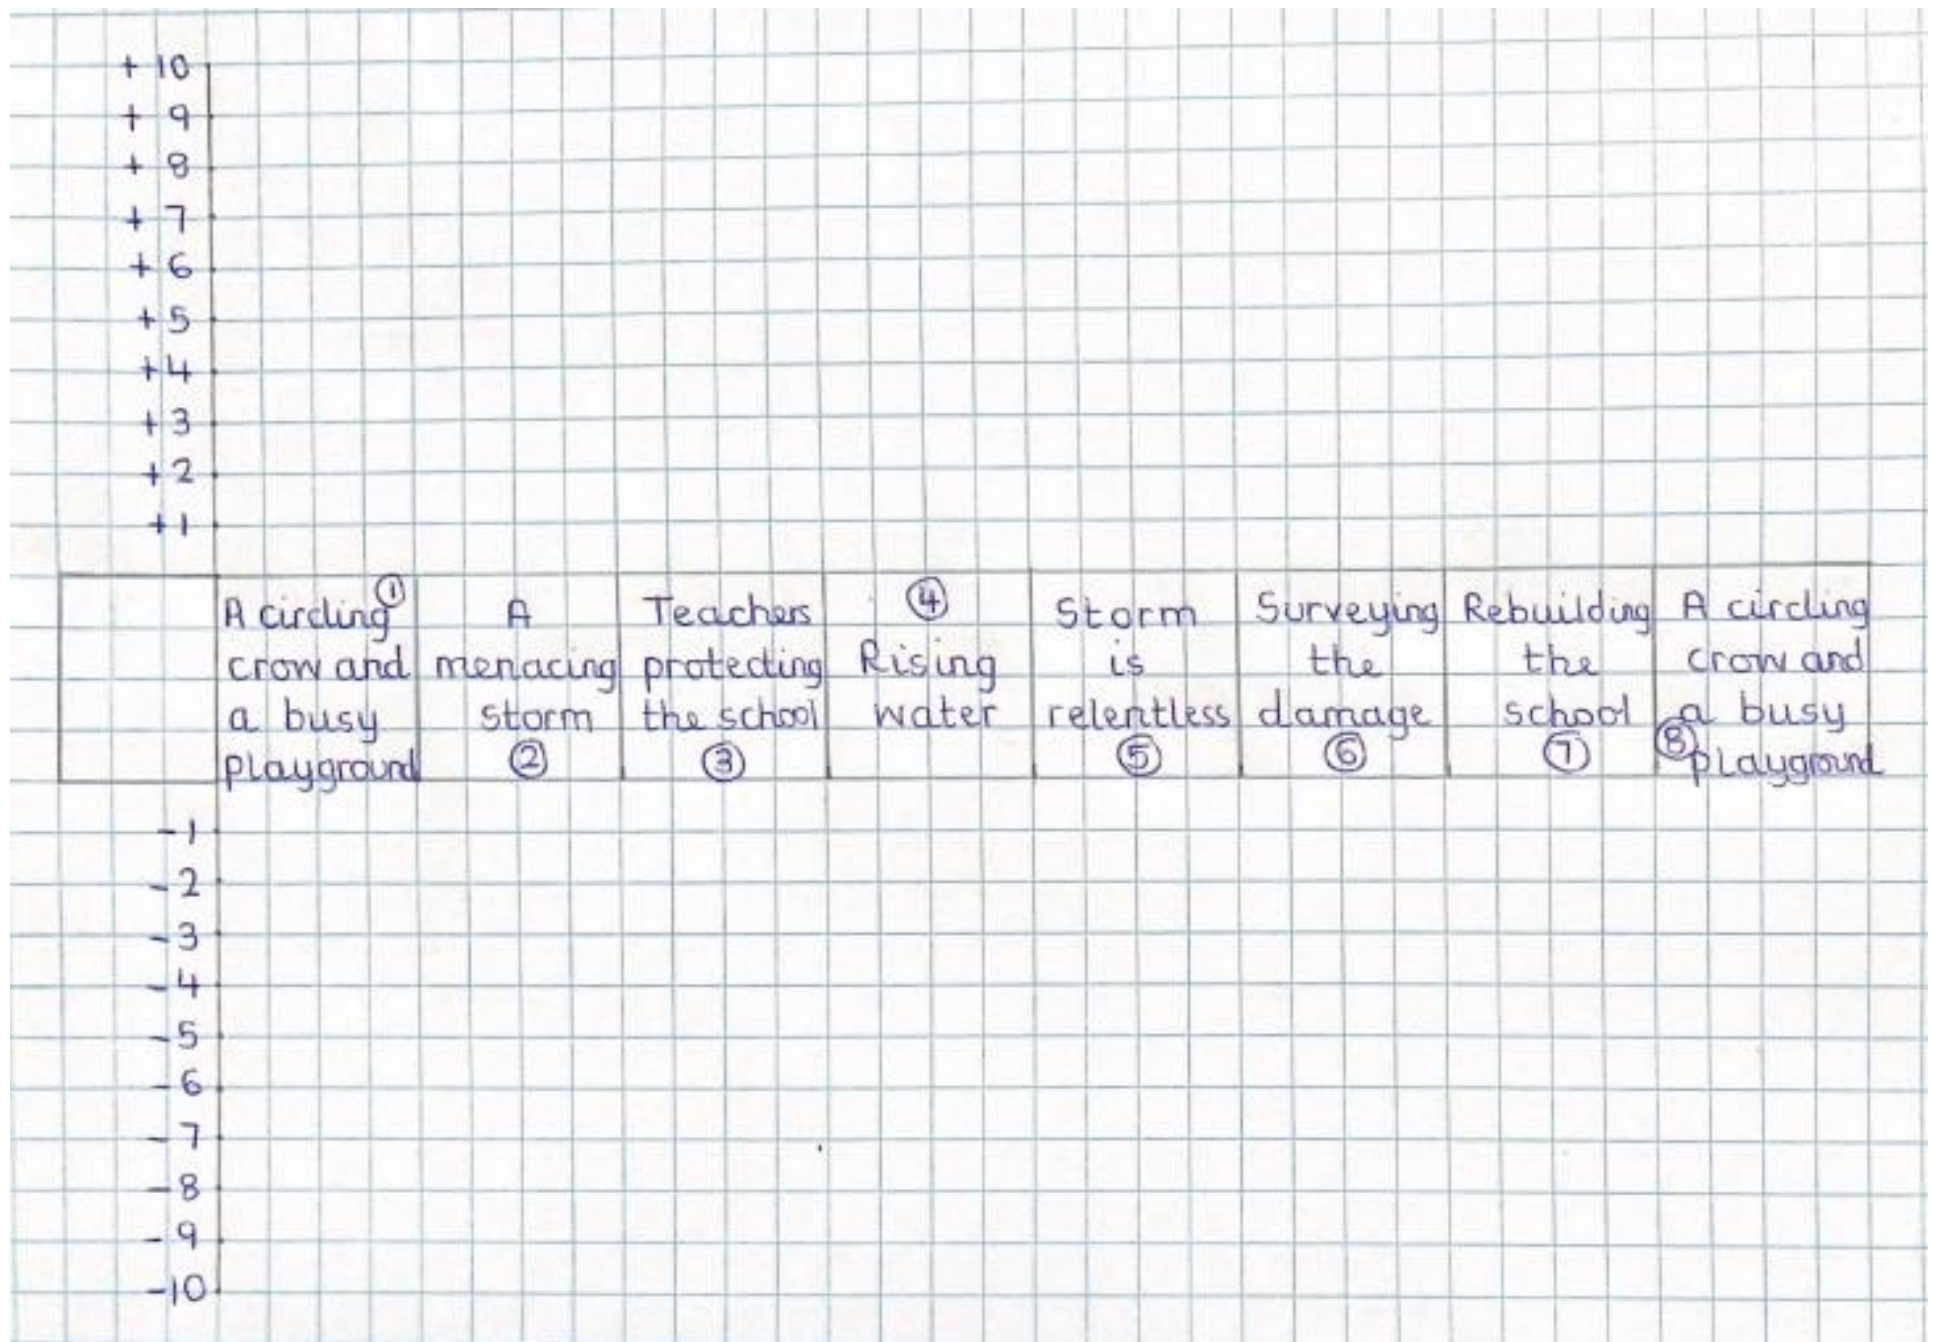 + 10
+ 9
+ 8
+ 7
+ 6
+5
+4
+3
+2
+1
A circling ①
crow and
a busy
playground
A
menacing
storm
②
Teachers
protecting
the school
③
④
Rising
water
Storm
is
relentless
⑤
Surveying
the
damage
⑥
Rebuilding
the
school
⑦
A circling
crow and
a busy
⑧ playground
-1
-2
-3
-4
-5
-6
-7
-8
-9
-10